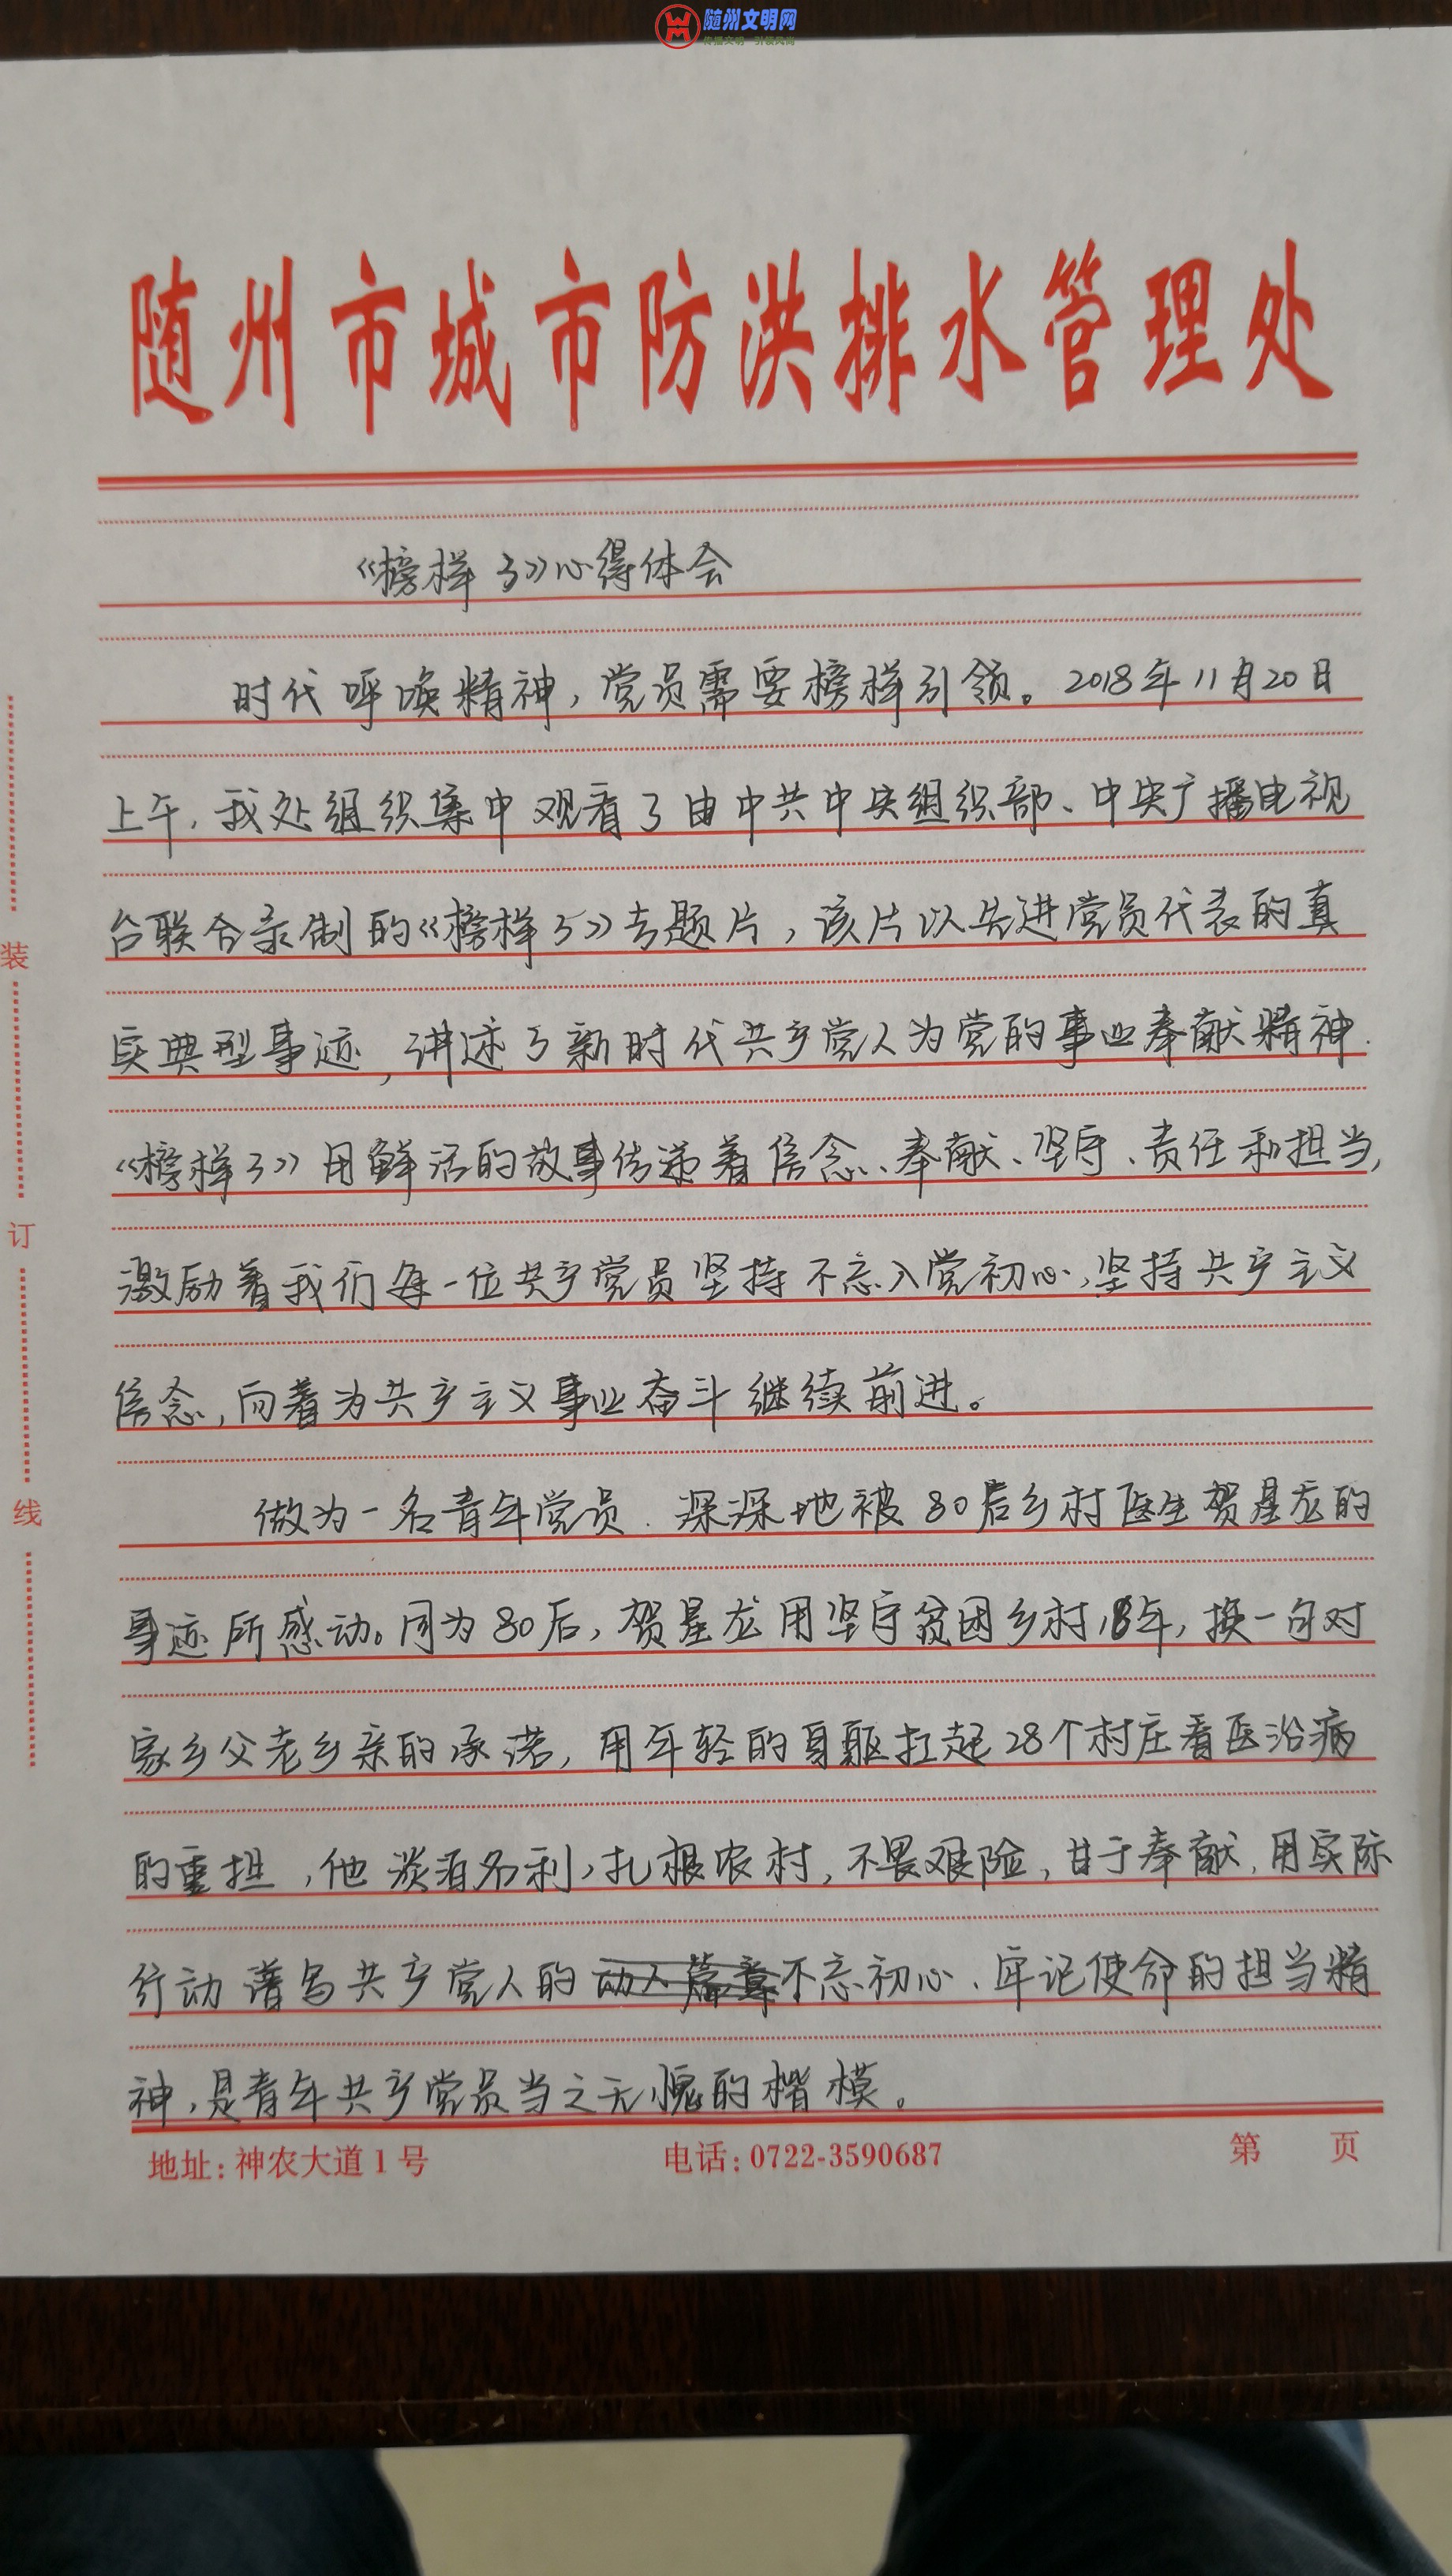 随州文明网
传播文明 引领风尚
随州市城市防洪排水管理处
《榜样3》心得体会
时代呼唤精神，党员需要榜样引领。2018年11月20日
上午，我处组织集中观看了由中共中央组织部、中央广播电视
台联合录制的《榜样3》专题片，该片以先进党员代表的真
实典型事迹，讲述了新时代共产党人为党的事业奉献精神.
《榜样3》用鲜活的故事传递着信念、奉献、坚守、责任和担当，
激励着我们每一位共产党员坚持不忘入党初心，坚持共产主义
信念，向着为共产主义事业奋斗继续前进。
做为一名青年党员．深深地被80后乡村医生贺星龙的
事迹所感动。同为80后，贺星龙用坚守贫困乡村18年，换一句对
家乡父老乡亲的承诺，用年轻的身躯扛起28个村庄看医治病
的重担，他淡泊名利，扎根农村，不畏艰险，甘于奉献，用实际
行动谱写共产党人的动人篇章不忘初心、牢记使命的担当精
神，是青年共产党员当之无愧的楷模。
地址：神农大道1号 电话：0722-3590687 第 页
装
订
线